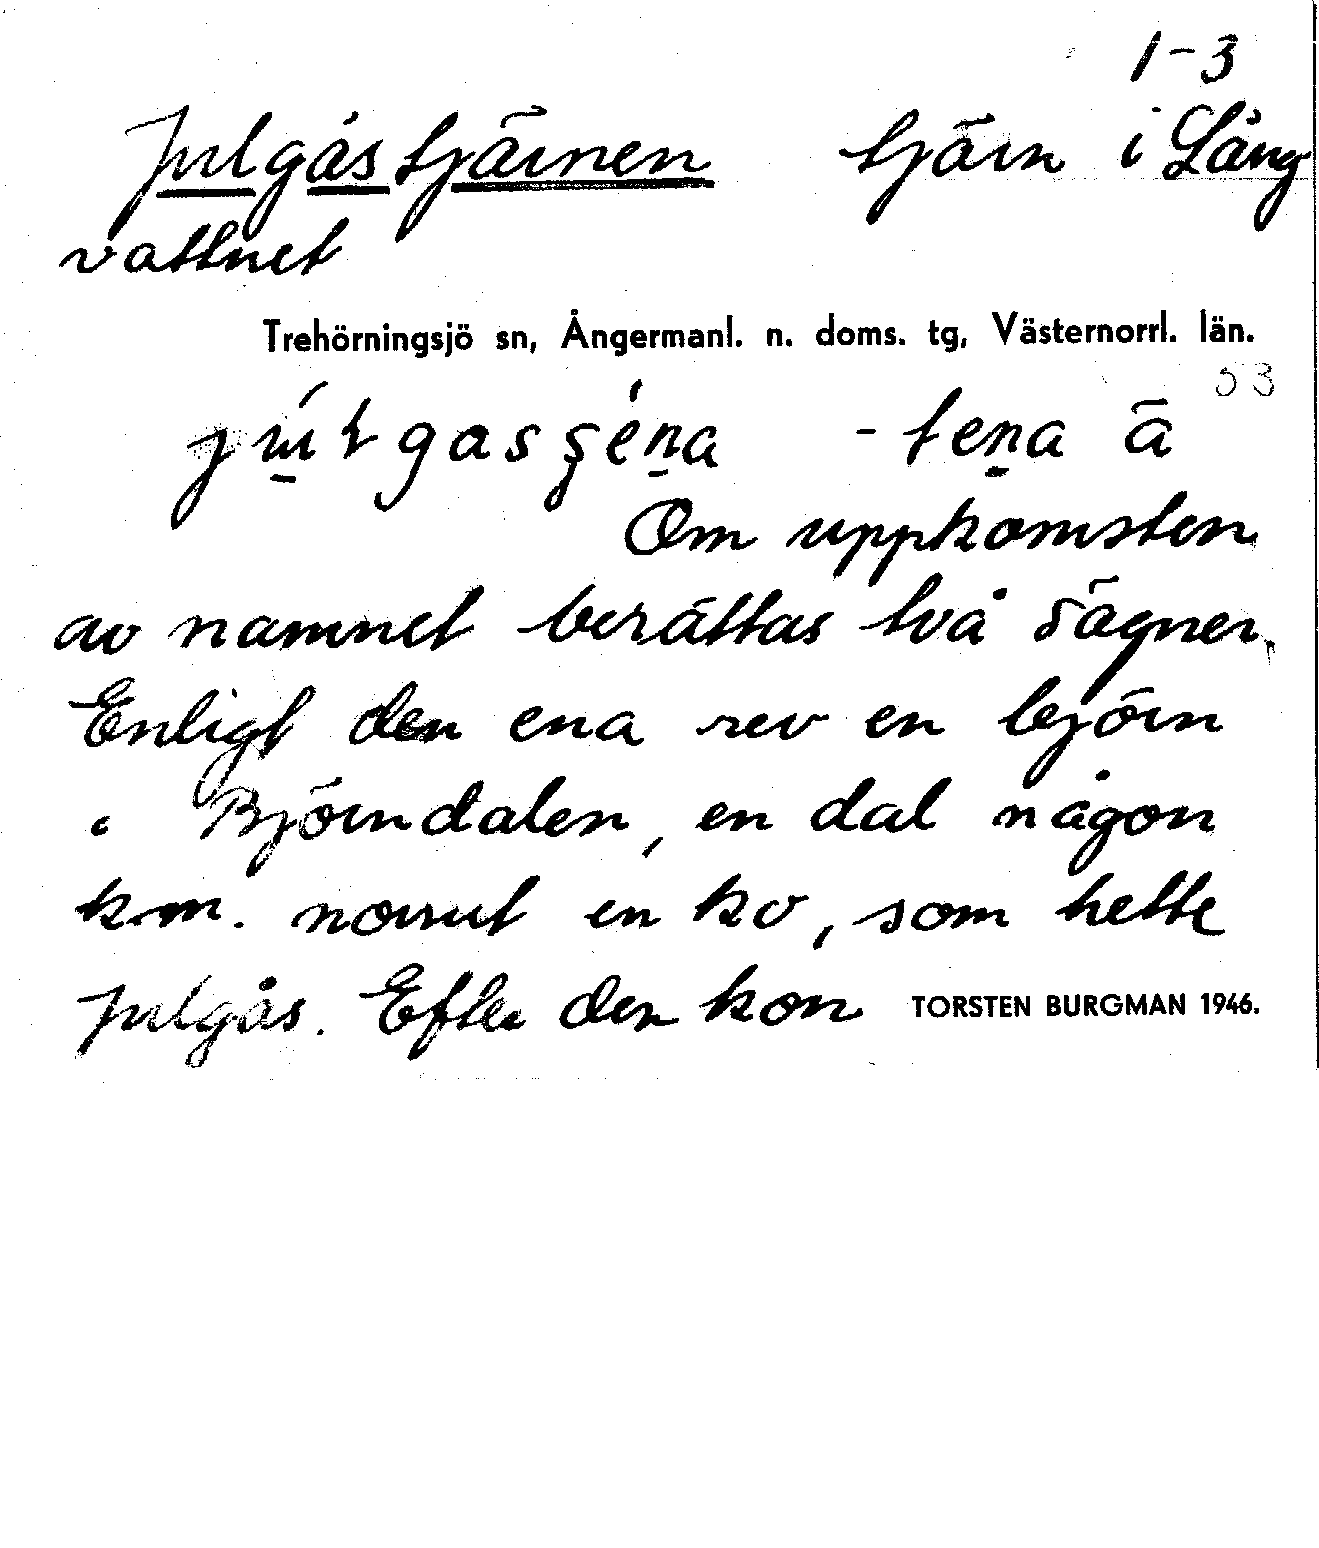 1-3
Julgåstjärnen tjärn i Lång
vattnet
Trehörningsjö sn, Ångermanl. n. doms. tg, Västernorrl. län.
53
Om uppkomsten
av namnet berättas två sägner.
Enligt den ena rev en björn
i Björndalen, en dal någon
km. norrut en ko, som hette
Julgås. Efter den kon TORSTEN BURGMAN 1946.